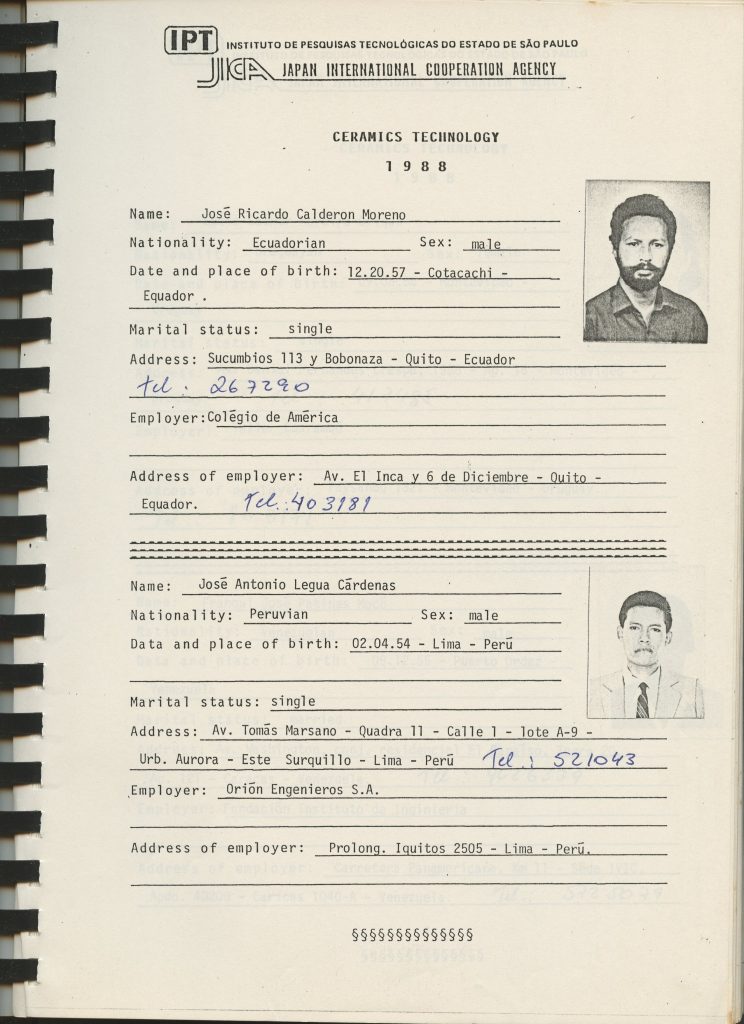 IPT INSTITUTO DE PESQUISAS TECNOLÓGICAS DO ESTADO DE SÃO PAULO
JICA JAPAN INTERNATIONAL COOPERATION AGENCY
CERAMICS TECHNOLOGY
1988
Name: José Ricardo Calderon Moreno
Nationality: Ecuadorian Sex: male
Date and place of birth: 12.20.57 - Cotacachi -
Equador .
Marital status: single
Address: Sucumbios 113 y Bobonaza - Quito - Ecuador
Tel: 267290
Employer: Colégio de América
Address of employer: Av. El Inca y 6 de Diciembre - Quito -
Equador. Tel.: 403181
Name: José Antonio Legua Cárdenas
Nationality: Peruvian Sex: male
Data and place of birth: 02.04.54 - Lima - Perú
Marital status: single
Address: Av. Tomás Marsano - Quadra 11 - Calle 1 - lote A-9 -
Urb. Aurora - Este Surquillo - Lima - Perú Tel.: 521043
Employer: Orión Engenieros S.A.
Address of employer: Prolong. Iquitos 2505 - Lima - Perú.
§§§§§§§§§§§§§§